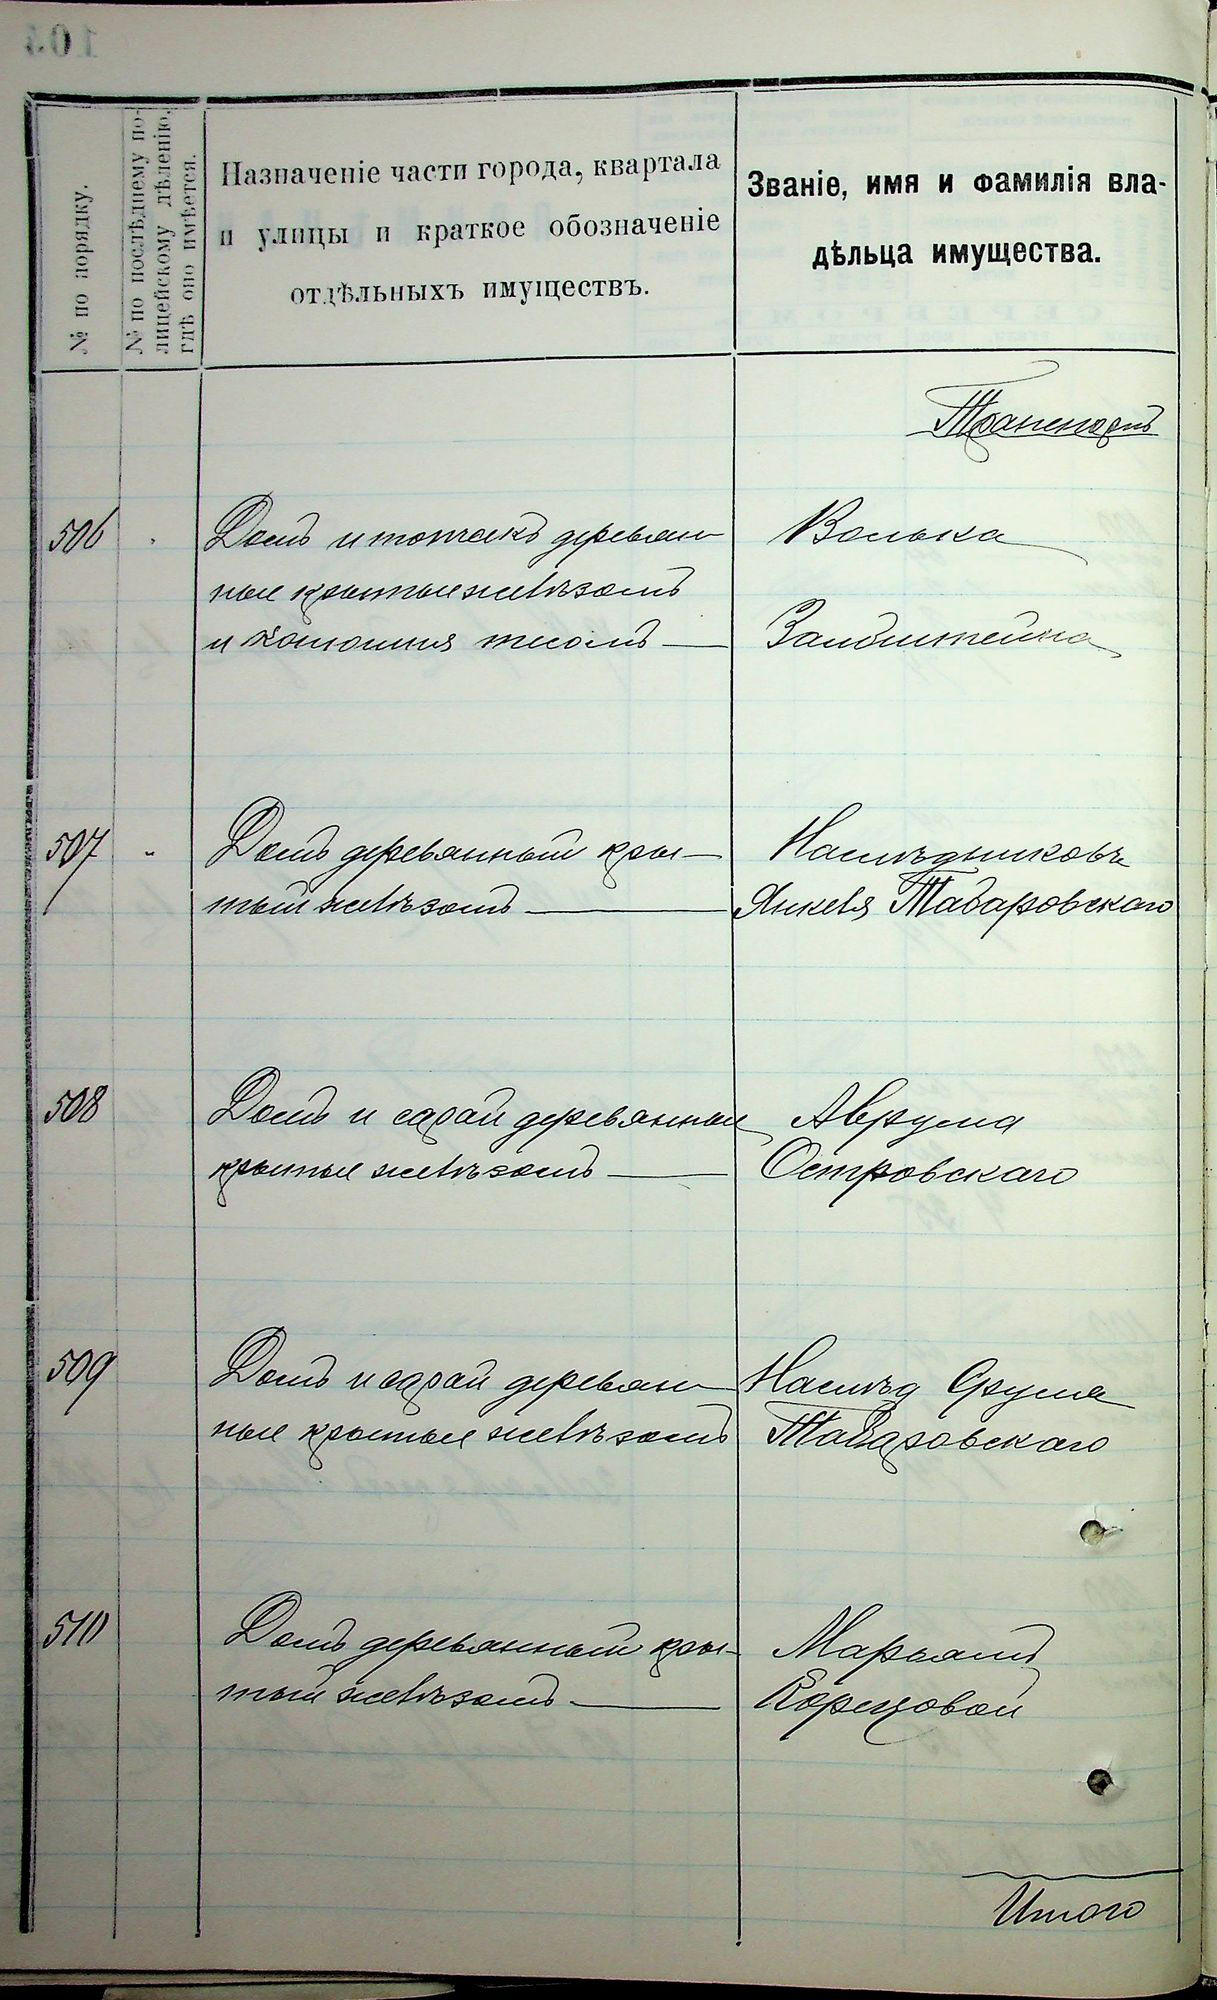 № по порядку.
№ по послѣднему по-
лицейскому дѣленію,
гдѣ оно имѣется.
Назначеніе части города, квартала
и улицы и краткое обозначеніе
отдѣльныхъ имуществъ.
Званіе, имя и фамилія вла-
дѣльца имущества.
Транспортъ
506
Домъ и деревян
ные крытые желѣзомъ
и конюшня тесомъ
Волька
Заибштейна
507
Домъ деревянный кры-
тый желѣзомъ
Наслѣдниковъ
Янкеля Табаровскаго
508
Домъ и сарай деревянные
крытые желѣзомъ
Аврума
Островскаго
509
Домъ и сарай деревян
ные крытые желѣзомъ
Наслѣд Срула
Табаровскаго
510
Домъ деревянный кры-
тый желѣзомъ
Марьямъ
Корецовой
Итого